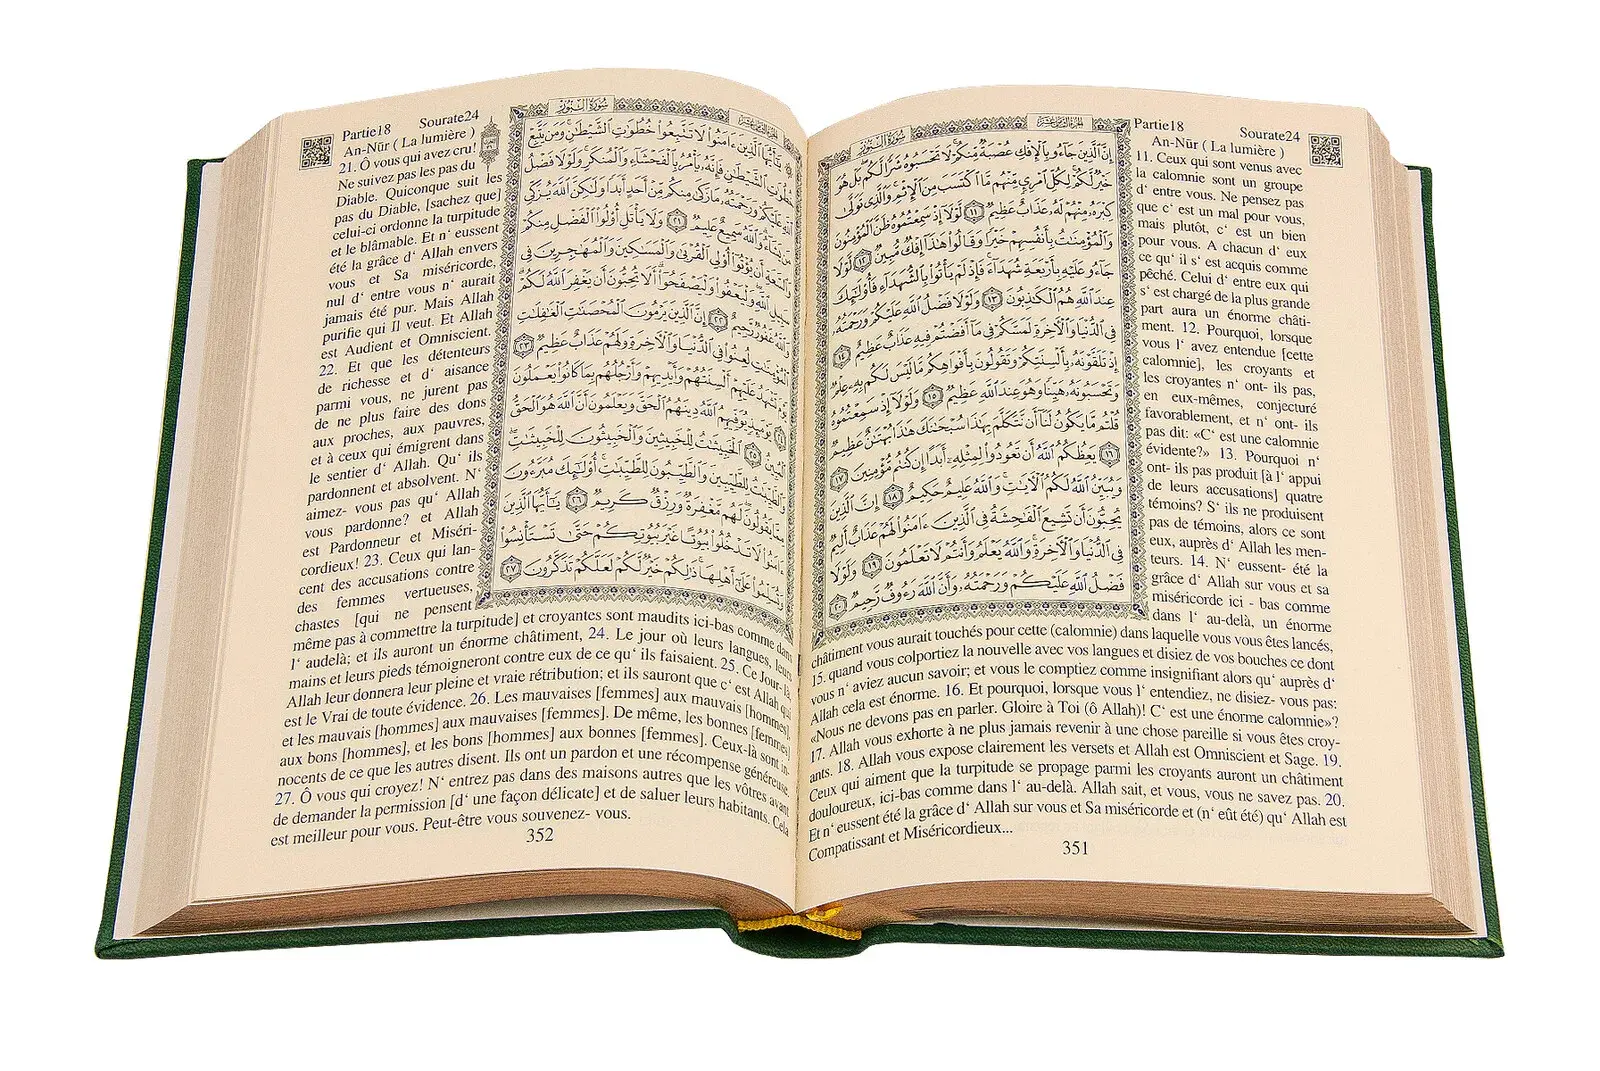 Partie18 Sourate24
An-Nūr ( La lumière )
11. Ceux qui sont venus avec
la calomnie sont un groupe
d‘ entre vous. Ne pensez pas
que c‘ est un mal pour vous,
mais plutôt, c‘ est un bien
pour vous. A chacun d‘ eux
ce qu‘ il s‘ est acquis comme
pêché. Celui d‘ entre eux qui
s‘ est chargé de la plus grande
part aura un énorme châti-
ment. 12. Pourquoi, lorsque
vous l‘ avez entendue [cette
calomnie], les croyants et
les croyantes n‘ ont- ils pas,
en eux-mêmes, conjecturé
favorablement, et n‘ ont- ils
pas dit: «C‘ est une calomnie
évidente?» 13. Pourquoi n‘
ont- ils pas produit [à l‘ appui
de leurs accusations] quatre
témoins? S‘ ils ne produisent
pas de témoins, alors ce sont
eux, auprès d‘ Allah les men-
teurs. 14. N‘ eussent- été la
grâce d‘ Allah sur vous et sa
miséricorde ici - bas comme
dans l‘ au-delà, un énorme
châtiment vous aurait touchés pour cette (calomnie) dans laquelle vous vous êtes lancés,
15. quand vous colportiez la nouvelle avec vos langues et disiez de vos bouches ce dont
vous n‘ aviez aucun savoir; et vous le comptiez comme insignifiant alors qu‘ auprès d‘
Allah cela est énorme. 16. Et pourquoi, lorsque vous l‘ entendiez, ne disiez- vous pas:
«Nous ne devons pas en parler. Gloire à Toi (ô Allah)! C‘ est une énorme calomnie»?
17. Allah vous exhorte à ne plus jamais revenir à une chose pareille si vous êtes croy-
ants. 18. Allah vous expose clairement les versets et Allah est Omniscient et Sage. 19.
Ceux qui aiment que la turpitude se propage parmi les croyants auront un châtiment
douloureux, ici-bas comme dans l‘ au-delà. Allah sait, et vous, vous ne savez pas. 20.
Et n‘ eussent été la grâce d‘ Allah sur vous et Sa miséricorde et (n‘ eût été) qu‘ Allah est
Compatissant et Miséricordieux...
351
الجزء الثامن عشر سُورَةُ النُّورِ
إِنَّ الَّذِينَ جَاءُو بِالْإِفْكِ عُصْبَةٌ مِّنكُمْ لَا تَحْسَبُوهُ شَرًّا لَّكُم بَلْ هُوَ
خَيْرٌ لَّكُمْ لِكُلِّ امْرِئٍ مِّنْهُم مَّا اكْتَسَبَ مِنَ الْإِثْمِ وَالَّذِي تَوَلَّىٰ
كِبْرَهُ مِنْهُمْ لَهُ عَذَابٌ عَظِيمٌ ١١ لَّوْلَا إِذْ سَمِعْتُمُوهُ ظَنَّ الْمُؤْمِنُونَ
وَالْمُؤْمِنَاتُ بِأَنفُسِهِمْ خَيْرًا وَقَالُوا هَٰذَا إِفْكٌ مُّبِينٌ ١٢ لَّوْلَا
جَاءُو عَلَيْهِ بِأَرْبَعَةِ شُهَدَاءَ فَإِذْ لَمْ يَأْتُوا بِالشُّهَدَاءِ فَأُولَٰئِكَ
عِندَ اللَّهِ هُمُ الْكَاذِبُونَ ١٣ وَلَوْلَا فَضْلُ اللَّهِ عَلَيْكُمْ وَرَحْمَتُهُ
فِي الدُّنْيَا وَالْآخِرَةِ لَمَسَّكُمْ فِي مَا أَفَضْتُمْ فِيهِ عَذَابٌ عَظِيمٌ ١٤
إِذْ تَلَقَّوْنَهُ بِأَلْسِنَتِكُمْ وَتَقُولُونَ بِأَفْوَاهِكُم مَّا لَيْسَ لَكُم بِهِ عِلْمٌ
وَتَحْسَبُونَهُ هَيِّنًا وَهُوَ عِندَ اللَّهِ عَظِيمٌ ١٥ وَلَوْلَا إِذْ سَمِعْتُمُوهُ
قُلْتُم مَّا يَكُونُ لَنَا أَن نَّتَكَلَّمَ بِهَٰذَا سُبْحَانَكَ هَٰذَا بُهْتَانٌ عَظِيمٌ
١٦ يَعِظُكُمُ اللَّهُ أَن تَعُودُوا لِمِثْلِهِ أَبَدًا إِن كُنتُم مُّؤْمِنِينَ ١٧
وَيُبَيِّنُ اللَّهُ لَكُمُ الْآيَاتِ وَاللَّهُ عَلِيمٌ حَكِيمٌ ١٨ إِنَّ الَّذِينَ
يُحِبُّونَ أَن تَشِيعَ الْفَاحِشَةُ فِي الَّذِينَ آمَنُوا لَهُمْ عَذَابٌ أَلِيمٌ
فِي الدُّنْيَا وَالْآخِرَةِ وَاللَّهُ يَعْلَمُ وَأَنتُمْ لَا تَعْلَمُونَ ١٩ وَلَوْلَا
فَضْلُ اللَّهِ عَلَيْكُمْ وَرَحْمَتُهُ وَأَنَّ اللَّهَ رَءُوفٌ رَّحِيمٌ ٢٠
Partie18 Sourate24
An-Nūr ( La lumière )
21. Ô vous qui avez cru!
Ne suivez pas les pas du
Diable. Quiconque suit les
pas du Diable, [sachez que]
celui-ci ordonne la turpitude
et le blâmable. Et n‘ eussent
été la grâce d‘ Allah envers
vous et Sa miséricorde,
nul d‘ entre vous n‘ aurait
jamais été pur. Mais Allah
purifie qui Il veut. Et Allah
est Audient et Omniscient.
22. Et que les détenteurs
de richesse et d‘ aisance
parmi vous, ne jurent pas
de ne plus faire des dons
aux proches, aux pauvres,
et à ceux qui émigrent dans
le sentier d‘ Allah. Qu‘ ils
pardonnent et absolvent. N‘
aimez- vous pas qu‘ Allah
vous pardonne? et Allah
est Pardonneur et Miséri-
cordieux! 23. Ceux qui lan-
cent des accusations contre
des femmes vertueuses,
chastes [qui ne pensent
même pas à commettre la turpitude] et croyantes sont maudits ici-bas comme dans
l‘ audelà; et ils auront un énorme châtiment, 24. Le jour où leurs langues, leurs
mains et leurs pieds témoigneront contre eux de ce qu‘ ils faisaient. 25. Ce Jour-là,
Allah leur donnera leur pleine et vraie rétribution; et ils sauront que c‘ est Allah qui
est le Vrai de toute évidence. 26. Les mauvaises [femmes] aux mauvais [hommes],
et les mauvais [hommes] aux mauvaises [femmes]. De même, les bonnes [femmes]
aux bons [hommes], et les bons [hommes] aux bonnes [femmes]. Ceux-là sont in-
nocents de ce que les autres disent. Ils ont un pardon et une récompense généreuse.
27. Ô vous qui croyez! N‘ entrez pas dans des maisons autres que les vôtres avant
de demander la permission [d‘ une façon délicate] et de saluer leurs habitants. Cela
est meilleur pour vous. Peut-être vous souvenez- vous.
352
الجزء الثامن عشر سُورَةُ النُّورِ
يَا أَيُّهَا الَّذِينَ آمَنُوا لَا تَتَّبِعُوا خُطُوَاتِ الشَّيْطَانِ وَمَن يَتَّبِعْ
خُطُوَاتِ الشَّيْطَانِ فَإِنَّهُ يَأْمُرُ بِالْفَحْشَاءِ وَالْمُنكَرِ وَلَوْلَا فَضْلُ
اللَّهِ عَلَيْكُمْ وَرَحْمَتُهُ مَا زَكَىٰ مِنكُم مِّنْ أَحَدٍ أَبَدًا وَلَٰكِنَّ اللَّهَ يُزَكِّي
مَن يَشَاءُ وَاللَّهُ سَمِيعٌ عَلِيمٌ ٢١ وَلَا يَأْتَلِ أُولُوا الْفَضْلِ مِنكُمْ
وَالسَّعَةِ أَن يُؤْتُوا أُولِي الْقُرْبَىٰ وَالْمَسَاكِينَ وَالْمُهَاجِرِينَ فِي
سَبِيلِ اللَّهِ وَلْيَعْفُوا وَلْيَصْفَحُوا أَلَا تُحِبُّونَ أَن يَغْفِرَ اللَّهُ لَكُمْ
وَاللَّهُ غَفُورٌ رَّحِيمٌ ٢٢ إِنَّ الَّذِينَ يَرْمُونَ الْمُحْصَنَاتِ الْغَافِلَاتِ
الْمُؤْمِنَاتِ لُعِنُوا فِي الدُّنْيَا وَالْآخِرَةِ وَلَهُمْ عَذَابٌ عَظِيمٌ ٢٣
يَوْمَ تَشْهَدُ عَلَيْهِمْ أَلْسِنَتُهُمْ وَأَيْدِيهِمْ وَأَرْجُلُهُم بِمَا كَانُوا يَعْمَلُونَ
٢٤ يَوْمَئِذٍ يُوَفِّيهِمُ اللَّهُ دِينَهُمُ الْحَقَّ وَيَعْلَمُونَ أَنَّ اللَّهَ هُوَ الْحَقُّ
الْمُبِينُ ٢٥ الْخَبِيثَاتُ لِلْخَبِيثِينَ وَالْخَبِيثُونَ لِلْخَبِيثَاتِ
وَالطَّيِّبَاتُ لِلطَّيِّبِينَ وَالطَّيِّبُونَ لِلطَّيِّبَاتِ أُولَٰئِكَ مُبَرَّءُونَ
مِمَّا يَقُولُونَ لَهُم مَّغْفِرَةٌ وَرِزْقٌ كَرِيمٌ ٢٦ يَا أَيُّهَا الَّذِينَ
آمَنُوا لَا تَدْخُلُوا بُيُوتًا غَيْرَ بُيُوتِكُمْ حَتَّىٰ تَسْتَأْنِسُوا
وَتُسَلِّمُوا عَلَىٰ أَهْلِهَا ذَٰلِكُمْ خَيْرٌ لَّكُمْ لَعَلَّكُمْ تَذَكَّرُونَ ٢٧